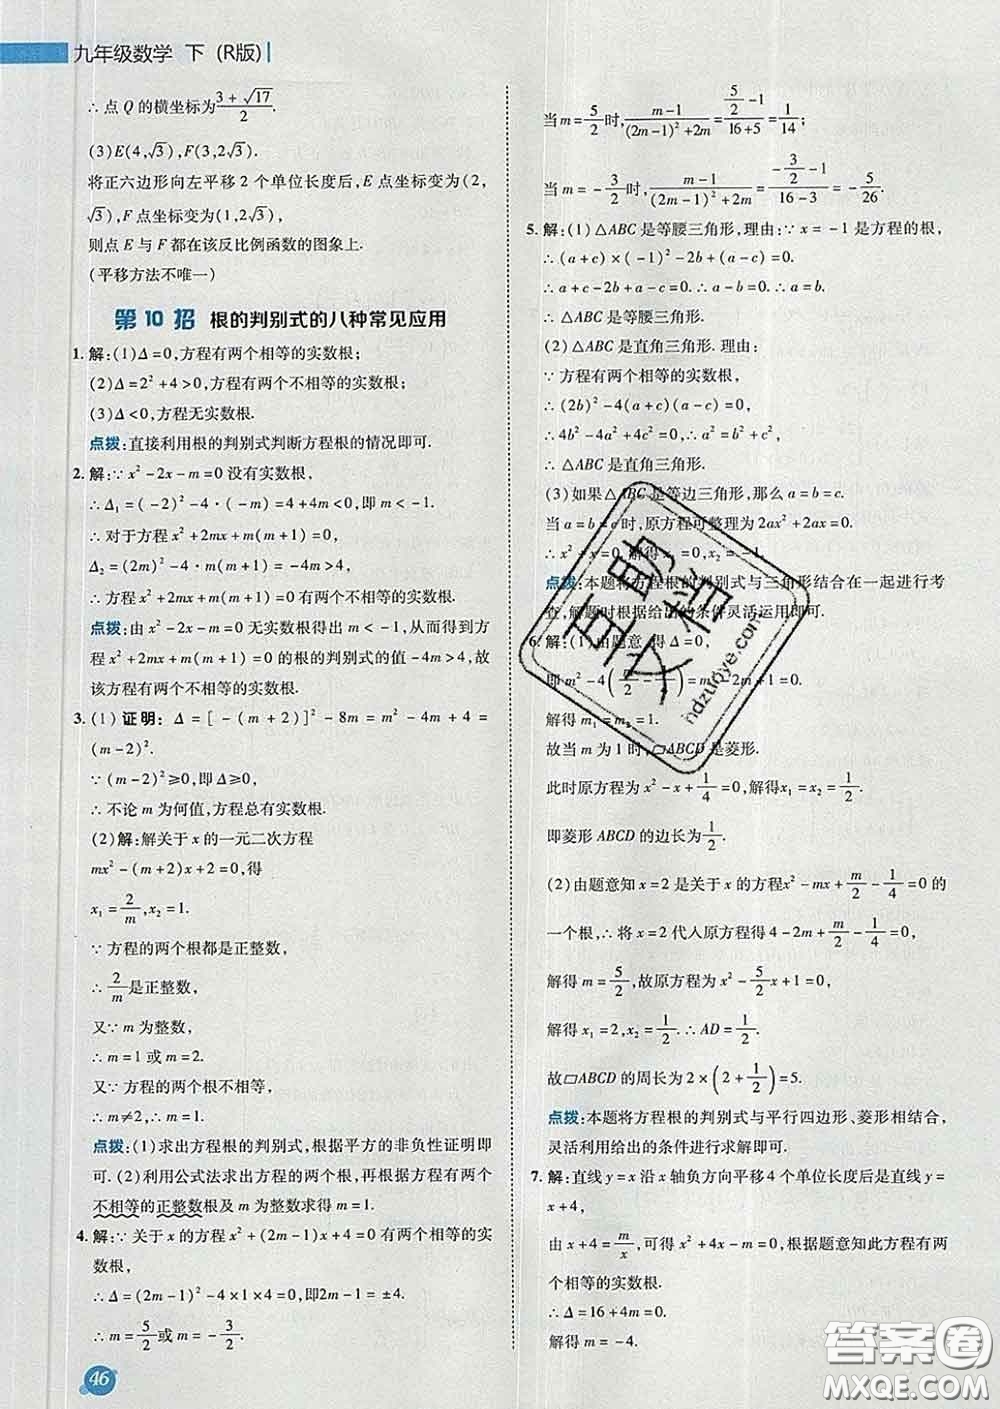 九年级数学 下 (R版)
∴点 Q 的横坐标为(3+√17)/2.
(3)E(4,√3),F(3,2√3).
将正六边形向左平移 2 个单位长度后,E 点坐标变为(2,
√3),F 点坐标变为(1,2√3),
则点 E 与 F 都在该反比例函数的图象上.
(平移方法不唯一)
第 10 招 根的判别式的八种常见应用
1. 解:(1)Δ=0,方程有两个相等的实数根;
(2)Δ=2²+4>0,方程有两个不相等的实数根;
(3)Δ<0,方程无实数根.
点拨:直接利用根的判别式判断方程根的情况即可.
2. 解:∵x²-2x-m=0 没有实数根,
∴Δ₁=(-2)²-4·(-m)=4+4m<0,即 m<-1.
∴对于方程 x²+2mx+m(m+1)=0,
Δ₂=(2m)²-4·m(m+1)=-4m>4,
∴方程 x²+2mx+m(m+1)=0 有两个不相等的实数根.
点拨:由 x²-2x-m=0 无实数根得出 m<-1,从而得到方
程 x²+2mx+m(m+1)=0 的根的判别式的值-4m>4,故
该方程有两个不相等的实数根.
3. (1) 证明: Δ=[-(m+2)]²-8m=m²-4m+4=
(m-2)².
∵(m-2)²≥0,即Δ≥0,
∴不论 m 为何值,方程总有实数根.
(2)解:解关于 x 的一元二次方程
mx²-(m+2)x+2=0,得
x₁=2/m,x₂=1.
∵方程的两个根都是正整数,
∴2/m是正整数,
又∵m 为整数,
∴m=1 或 m=2.
又∵方程的两个根不相等,
∴m≠2,∴m=1.
点拨:(1)求出方程根的判别式,根据平方的非负性证明即
可.(2)利用公式法求出方程的两个根,再根据方程有两个
不相等的正整数根及 m 为整数求得 m=1.
4. 解:∵关于 x 的方程 x²+(2m-1)x+4=0 有两个相等的实
数根,
∴Δ=(2m-1)²-4×1×4=0,即2m-1=±4.
∴m=5/2或 m=-3/2.
当 m=5/2时,(m-1)/((2m-1)²+2m)=(5/2-1)/(16+5)=1/14;
当 m=-3/2时,(m-1)/((2m-1)²+2m)=(-3/2-1)/(16-3)=-5/26.
5. 解:(1)△ABC 是等腰三角形,理由:∵x=-1 是方程的根,
∴(a+c)×(-1)²-2b+(a-c)=0.
∴a+c-2b+a-c=0.∴a-b=0.∴a=b.
∴△ABC 是等腰三角形.
(2)△ABC 是直角三角形. 理由:
∵方程有两个相等的实数根,
∴(2b)²-4(a+c)(a-c)=0,
∴4b²-4a²+4c²=0,∴a²=b²+c²,
∴△ABC 是直角三角形.
(3)如果△ABC 是等边三角形,那么 a=b=c.
当 a=b=c时,原方程可整理为 2ax²+2ax=0.
∴x²+x=0,解得 x₁=0,x₂=-1.
点拨:本题将方程根的判别式与三角形结合在一起进行考
查,解题时根据给出的条件灵活运用即可.
6. 解:(1)由题意,得 Δ=0,
即 m²-4(m/2-1/4)=0,
解得 m₁=m₂=1.
故当 m 为 1 时,▱ABCD 是菱形.
此时原方程为 x²-x+1/4=0,解得x₁=x₂=1/2.
即菱形 ABCD 的边长为1/2.
(2)由题意知 x=2 是关于 x 的方程x²-mx+m/2-1/4=0 的
一个根,∴将 x=2 代入原方程得 4-2m+m/2-1/4=0,
解得 m=5/2,故原方程为 x²-5/2x+1=0,
解得 x₁=2,x₂=1/2.∴AD=1/2.
故▱ABCD 的周长为 2×(2+1/2)=5.
点拨:本题将方程根的判别式与平行四边形、菱形相结合,
灵活利用给出的条件进行求解即可.
7. 解:直线 y=x 沿 x 轴负方向平移 4 个单位长度后是直线 y=
x+4,
由 x+4=m/x,可得 x²+4x-m=0,根据题意知此方程有两
个相等的实数根.
∴Δ=16+4m=0.
解得 m=-4.
46
互助
文档
hdzuoye.com
答案圈
MXQE.COM